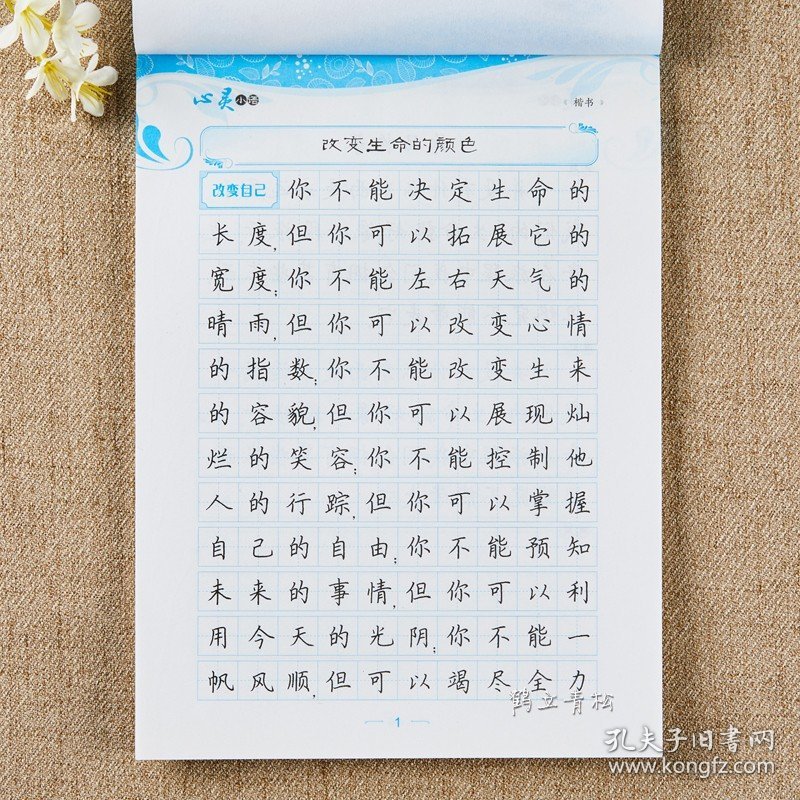 心灵小语
楷书
改变生命的颜色
改变自己 你不能决定生命的
长度,但你可以拓展它的
宽度;你不能左右天气的
晴雨,但你可以改变心情
的指数;你不能改变生来
的容貌,但你可以展现灿
烂的笑容;你不能控制他
人的行踪,但你可以掌握
自己的自由;你不能预知
未来的事情,但你可以利
用今天的光阴;你不能一
帆风顺,但可以竭尽全力
鹤立青松
1
孔夫子旧书网
www.kongfz.com